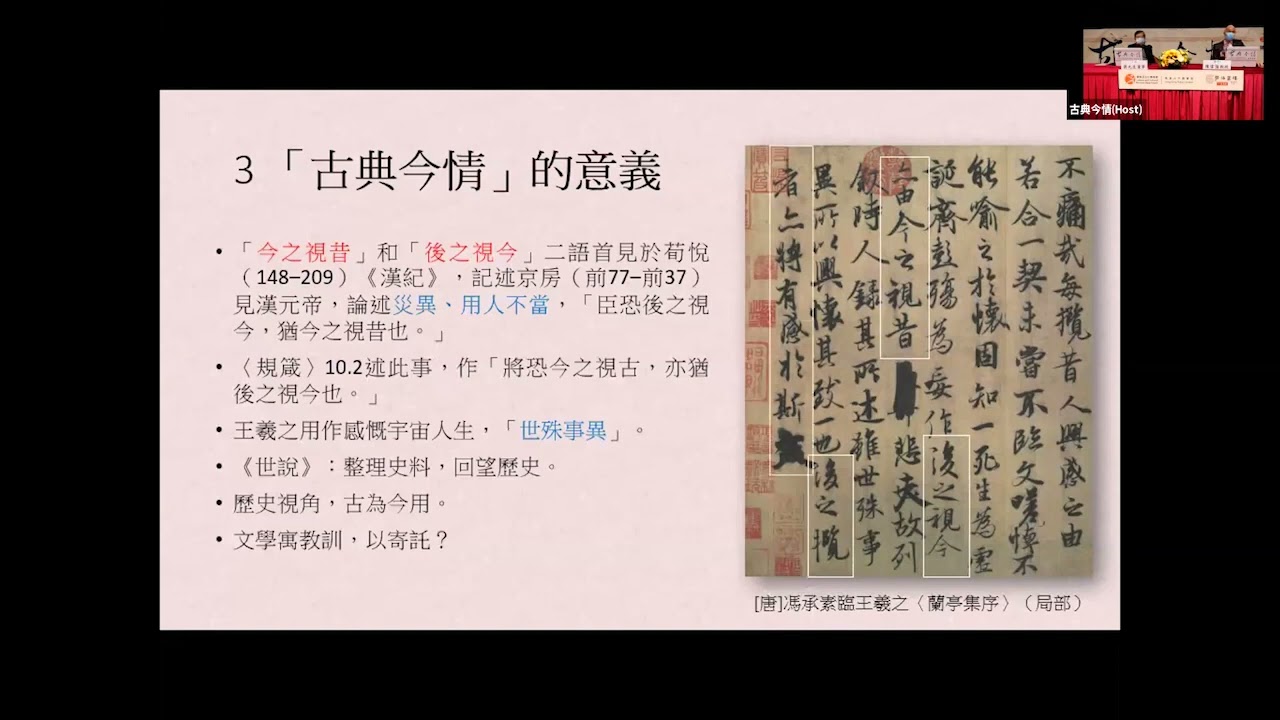 3「古典今情」的意義
• 「今之視昔」和「後之視今」二語首見於荀悅
（148–209）《漢紀》，記述京房（前77–前37）
見漢元帝，論述災異、用人不當，「臣恐後之視
今，猶今之視昔也。」
• 〈規箴〉10.2述此事，作「將恐今之視古，亦猶
後之視今也。」
• 王羲之用作感慨宇宙人生，「世殊事異」。
• 《世說》：整理史料，回望歷史。
• 歷史視角，古為今用。
• 文學寓教訓，以寄託？
不痛哉每攬昔人興感之由
若合一契未嘗不臨文嗟悼不
能喻之於懷固知一死生為虛
誕齊彭殤為妄作後之視今
亦由今之視昔悲夫故列
敘時人錄其所述雖世殊事
異所以興懷其致一也後之攬
者亦將有感於斯文
[唐]馮承素臨王羲之〈蘭亭集序〉（局部）
古典今情(Host)